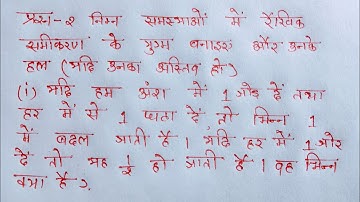 प्रश्न-२ निम्न समस्याओं में रैखिक
समीकरणों के युग्म बनाइए और उनके
हल (यदि उनका अस्तित्व हो)
(i) यदि हम अंश में 1 जोड़ दें तथा
हर में से 1 घटा दें तो भिन्न 1
में बदल जाती है। यदि हर में 1 जोड़
दें तो यह 1/2 हो जाती है। वह भिन्न
क्या है?